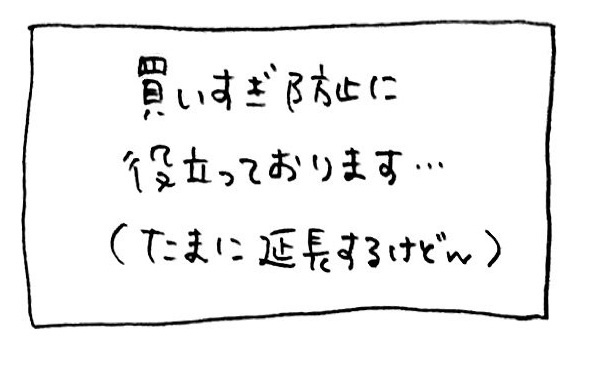 買いすぎ防止に
役立っております…
(たまに延長するけどw)